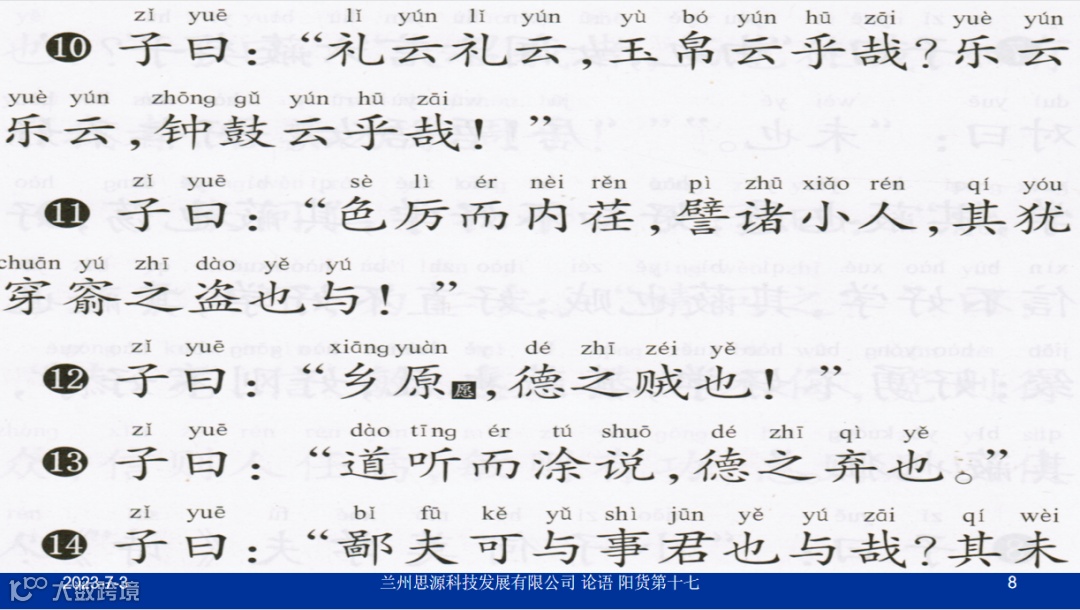 zǐ yuē lǐ yún lǐ yún yù bó yún hū zāi yuè yún
⑩ 子曰：“礼云礼云，玉帛云乎哉？乐云
yuè yún zhōng gǔ yún hū zāi
乐云，钟鼓云乎哉！”
zǐ yuē sè lì ér nèi rěn pì zhū xiǎo rén qí yóu
⑪ 子曰：“色厉而内荏，譬诸小人，其犹
chuān yú zhī dào yě yú
穿窬之盗也与！”
zǐ yuē xiāng yuàn dé zhī zéi yě
⑫ 子曰：“乡原愿，德之贼也！”
zǐ yuē dào tīng ér tú shuō dé zhī qì yě
⑬ 子曰：“道听而涂说，德之弃也。”
zǐ yuē bǐ fū kě yǔ shì jūn yě yú zāi qí wèi
⑭ 子曰：“鄙夫可与事君也与哉？其未
2023-7-3 兰州思源科技发展有限公司 论语 阳货第十七 8
大数跨境